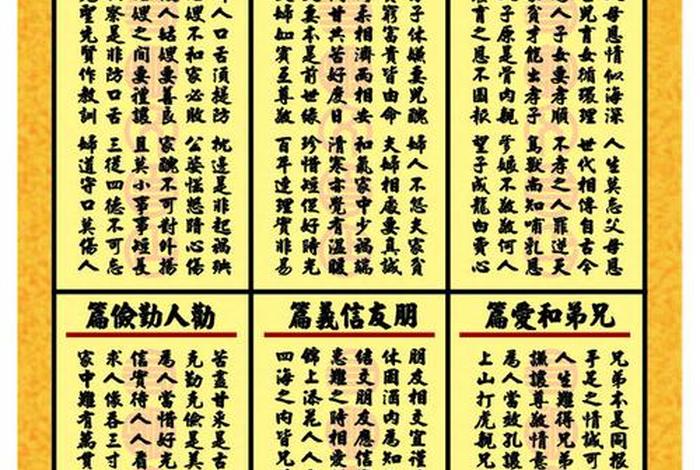 母恩情似海深 人生莫忘父母恩
兒育女循環理 世代相傳自古今
人子女要孝順 不孝之人罪逆天
貧才能出孝子 鳥獸尚知哺乳恩
子原是骨肉親 爹娘不敬敬何人
育之恩不圖報 望子成龍白費心
子休嫌妻兒醜 婦人不怨夫家貧
窮富貴皆由命 夫婦相處要真誠
柔相濟兩相安 和氣家中少禍端
甘共苦好度日 清寒亦覺有溫暖
妻本是前世緣 珍惜短促好時光
婦如賓互尊敬 百年連理實非易
人口舌須提防 枕邊是非起禍殃
嫂不和家必敗 公婆惱怒心傷
人姑嫂要善良 家醜不可對外揚
嫂之間要禮讓 且莫小事爭短長
察是非防口舌 三從四德不可忘
聖先賢作教訓 婦道守口莫傷人
兄弟和愛篇
兄弟本是同根
手足之情誠可
人生難得兄弟
謙讓尊敬情意
為人當效孔讓
上山打虎親兄
朋友信義篇
朋友相交宜謹
休困酒肉為知
結交朋友應信
患難之時相愛
錦上添花人人
四海之內皆兄
勸人勤儉篇
苦盡甘來是古
克勤克儉是美
為人當惜好光
信實待人人看
求人像吞三寸
家中雖有萬貫